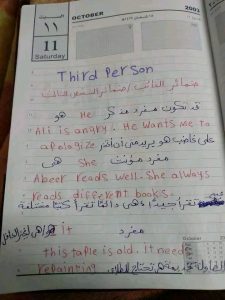 السبت
١١
11
Saturday
OCTOBER
2003
Third Person
ضمائر الغائب / ضمائر الشخص الثالث
قد تكون مفرد مذكر He هو
Ali is angry. He wants me to
apologize علي غاضب هو يريدني أن أعتذر
مفرد مؤنث She هى
Abeer reads well. She always
reads different books.
عبير تقرأ جيداً وهى دائماً تقرأ كتباً مختلفة
مفرد It هو / هى لغير العاقل
this table is old. It need
repainting الطاولة قديمة هى تحتاج للطلاء
October